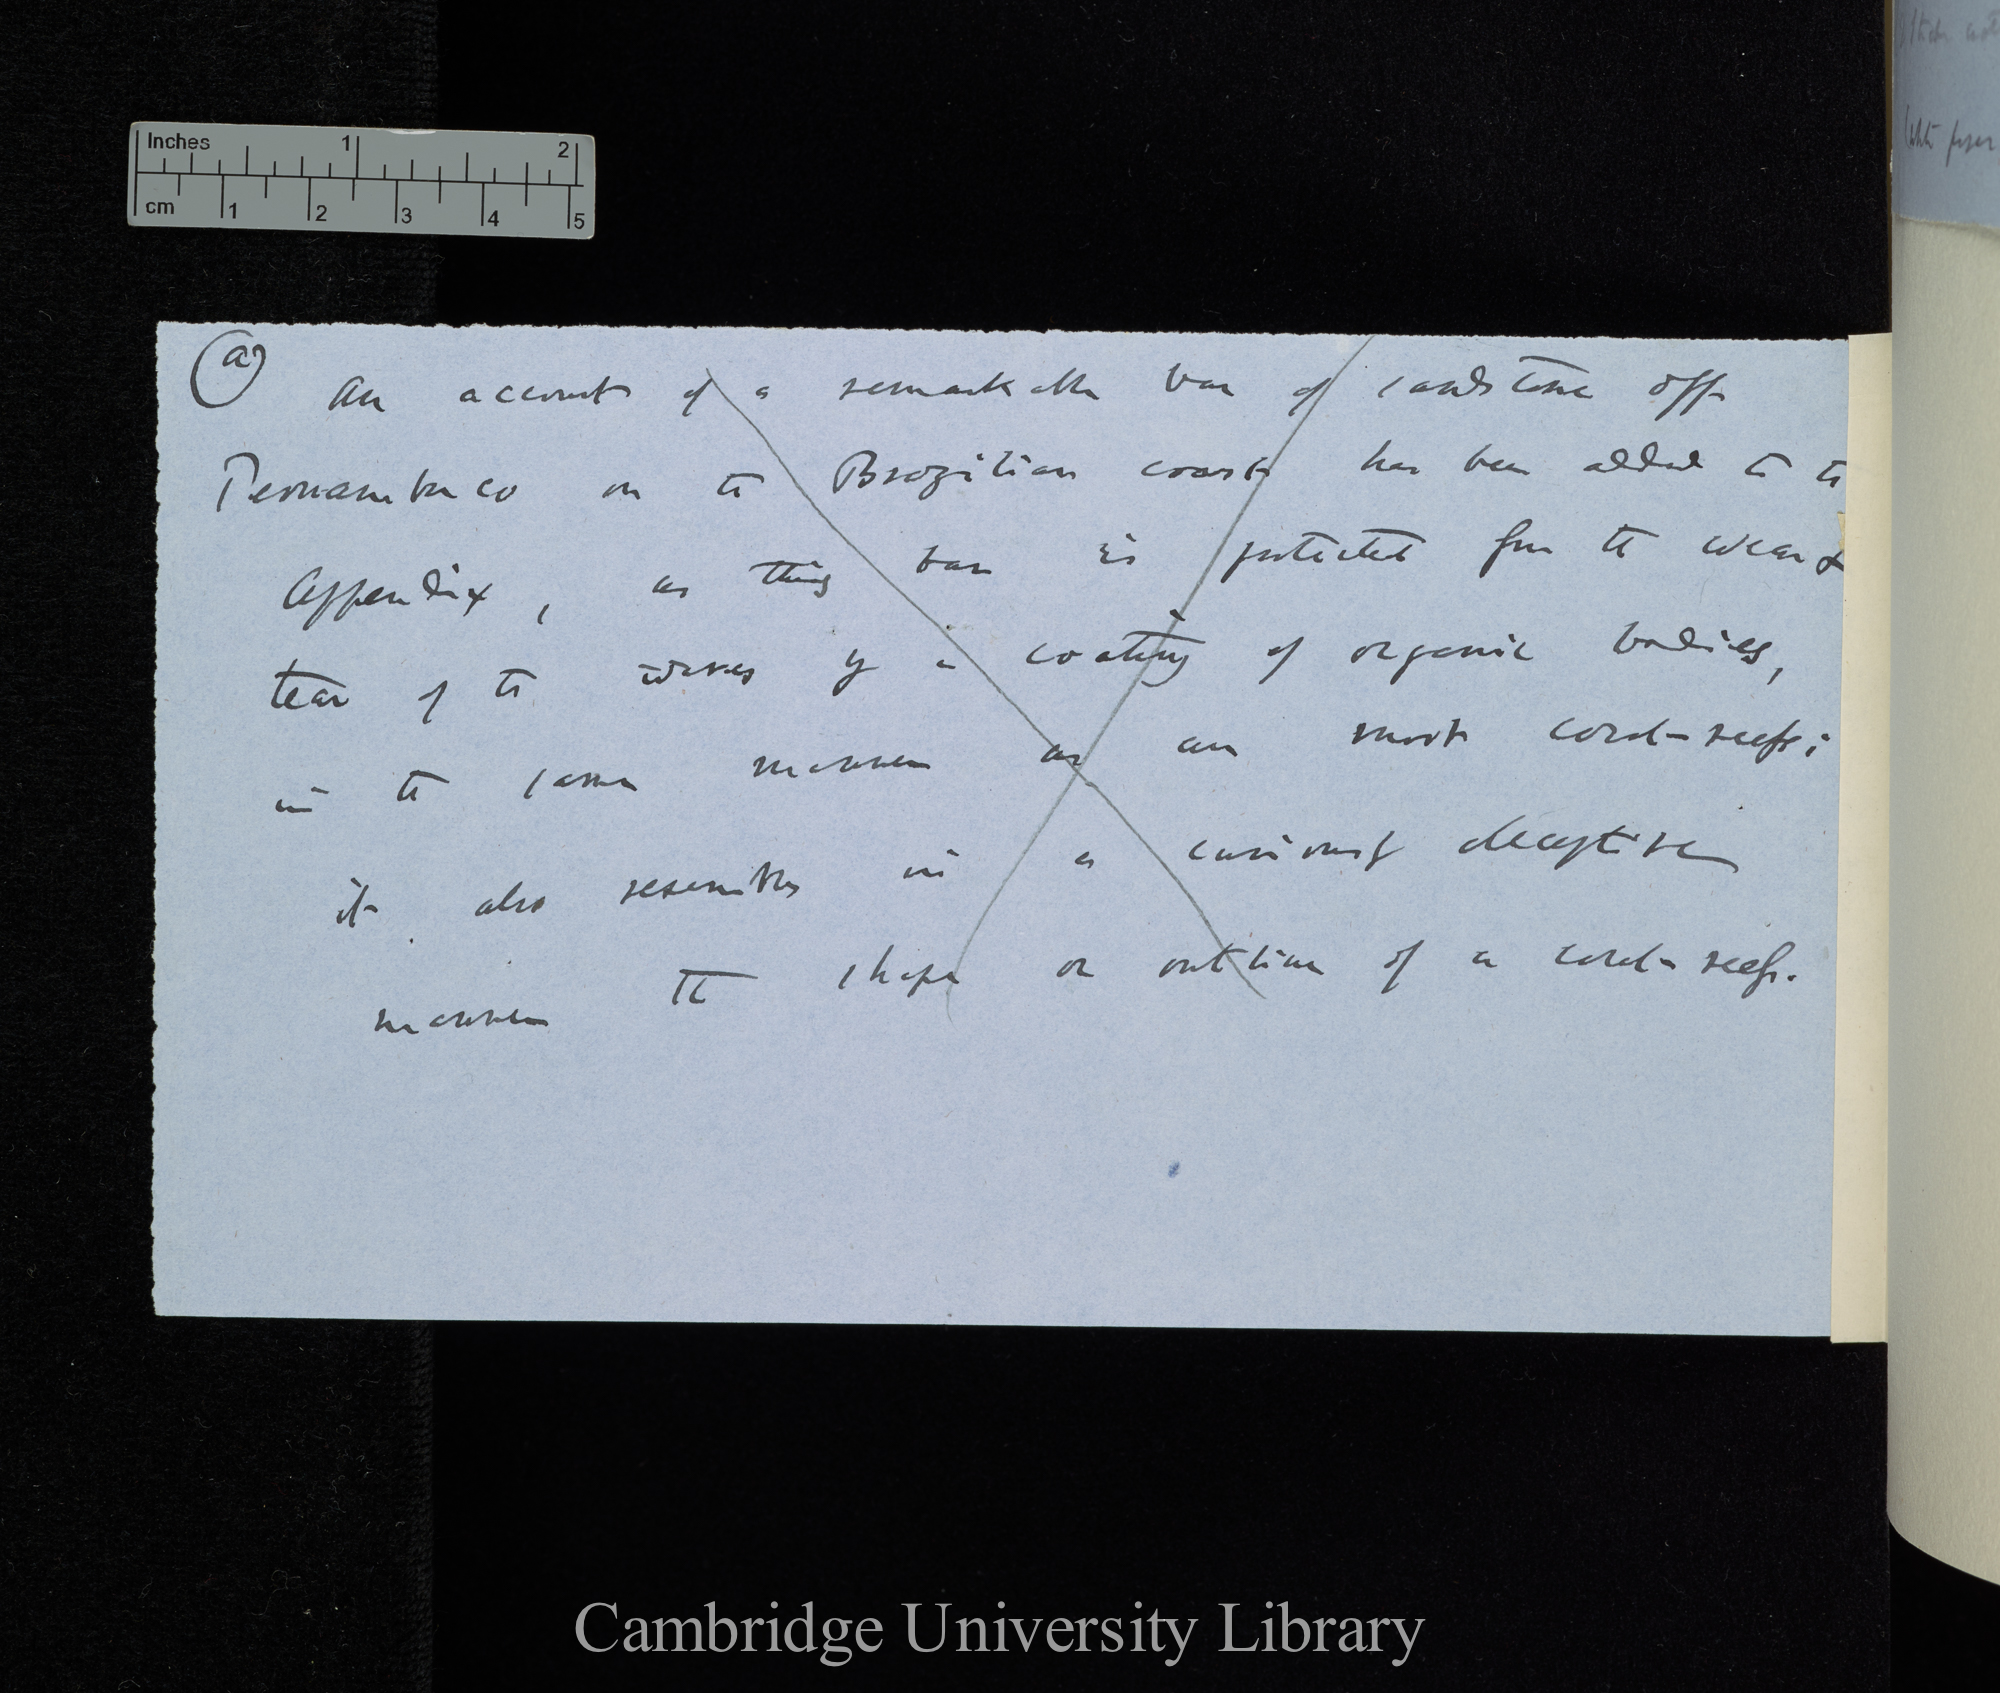 Inches 1 2
cm 1 2 3 4 5
(a) An account of a remarkable bar of sandstone off
Pernambuco on the Brazilian coast has been added to the
Appendix, as this bar is protected from the wear &
tear of the waves by a coating of organic bodies,
in the same manner as are most coral-reefs;
it also resembles in a curiously deceptive
manner the shape or outline of a coral-reef.
Cambridge University Library